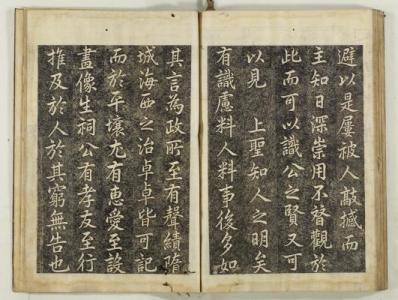 避以是屢被人敲撼而
主知日深崇用不替觀於
此而可以識公之賢又可
以見 上聖知人之明矣
有識慮料人料事後多如
其言為政所至有聲績隋
城海西之治卓卓皆可記
而於平壤尤有惠愛至設
畫像生祠公有孝友至行
推及於人於其窮無告也